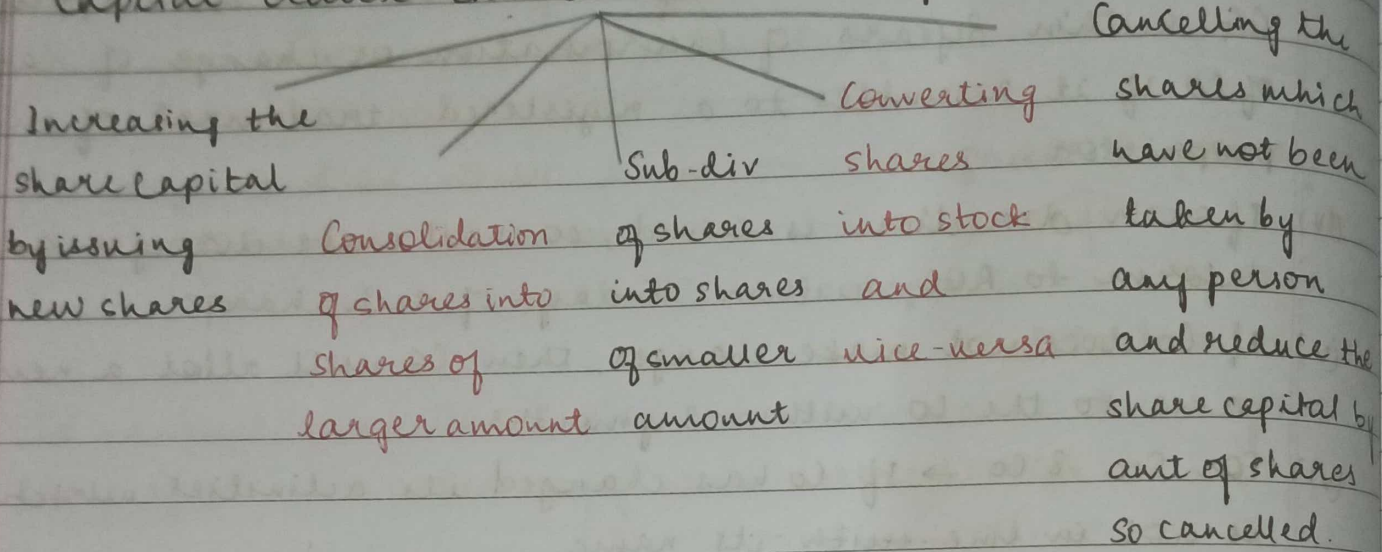 Capital
Increasing the
share capital
by issuing
new shares
Consolidation
of shares into
shares of
larger amount
Sub-div
of shares
into shares
of smaller
amount
Converting
shares
into stock
and
vice-versa
Cancelling the
shares which
have not been
taken by
any person
and reduce the
share capital by
amt of shares
so cancelled.